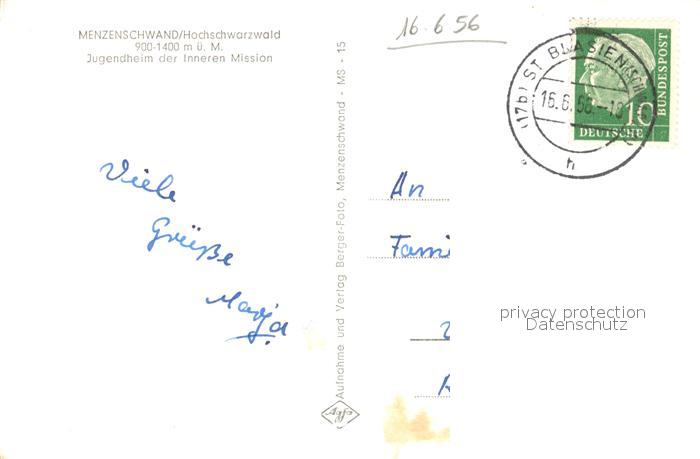 MENZENSCHWAND/Hochschwarzwald
900-1400 m ü. M.
Jugendheim der Inneren Mission
16.6.56
(17b) ST BLASIEN (SCHW
16.6.56.-18
h
BUNDESPOST
10
DEUTSCHE
Viele
Grüße
Aufnahme und Verlag Berger-Foto, Menzenschwand - MS - 15
Agfa
An
Fami
privacy protection
Datenschutz